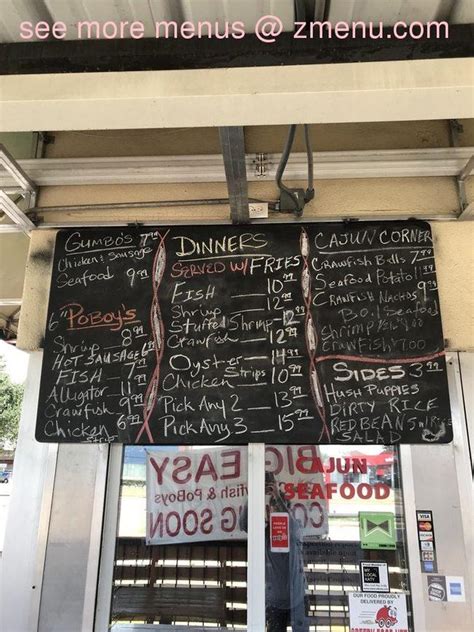 see more menus @ zmenu.com
GUMBO'S 7 99
Chicken & Sausage
Seafood 9 99
6" POBOY'S
Shrup 8 99
HOT SAUSAGE 6 99
FISH 7 99
Alligator 11 99
Crawfish 9 99
Chicken 6 99
Strips
DINNERS
SERVED W/ FRIES
FISH 10 99
Shrup 12 99
Stuffed Shrimp 12 99
Crawfish 12 99
Oyster 14 99
Chicken Strips 10 99
PICK Any 2 13 99
PICK Any 3 15 99
CAJUN CORNER
CRAWFISH Balls 7 99
Seafood Potato
CRAWFISH NACHOS 9 99
Boil Seafood
CRAWFISH 7.00
SIDES 3 99
HUSH PUPPIES
DIRTY RICE
RED BEANS
SALAD
BIG EASY
& PoBoys
COMING SOON
CAJUN
SEAFOOD
VISA
MY LOCAL
KATY
OUR FOOD PROUDLY
DELIVERED BY